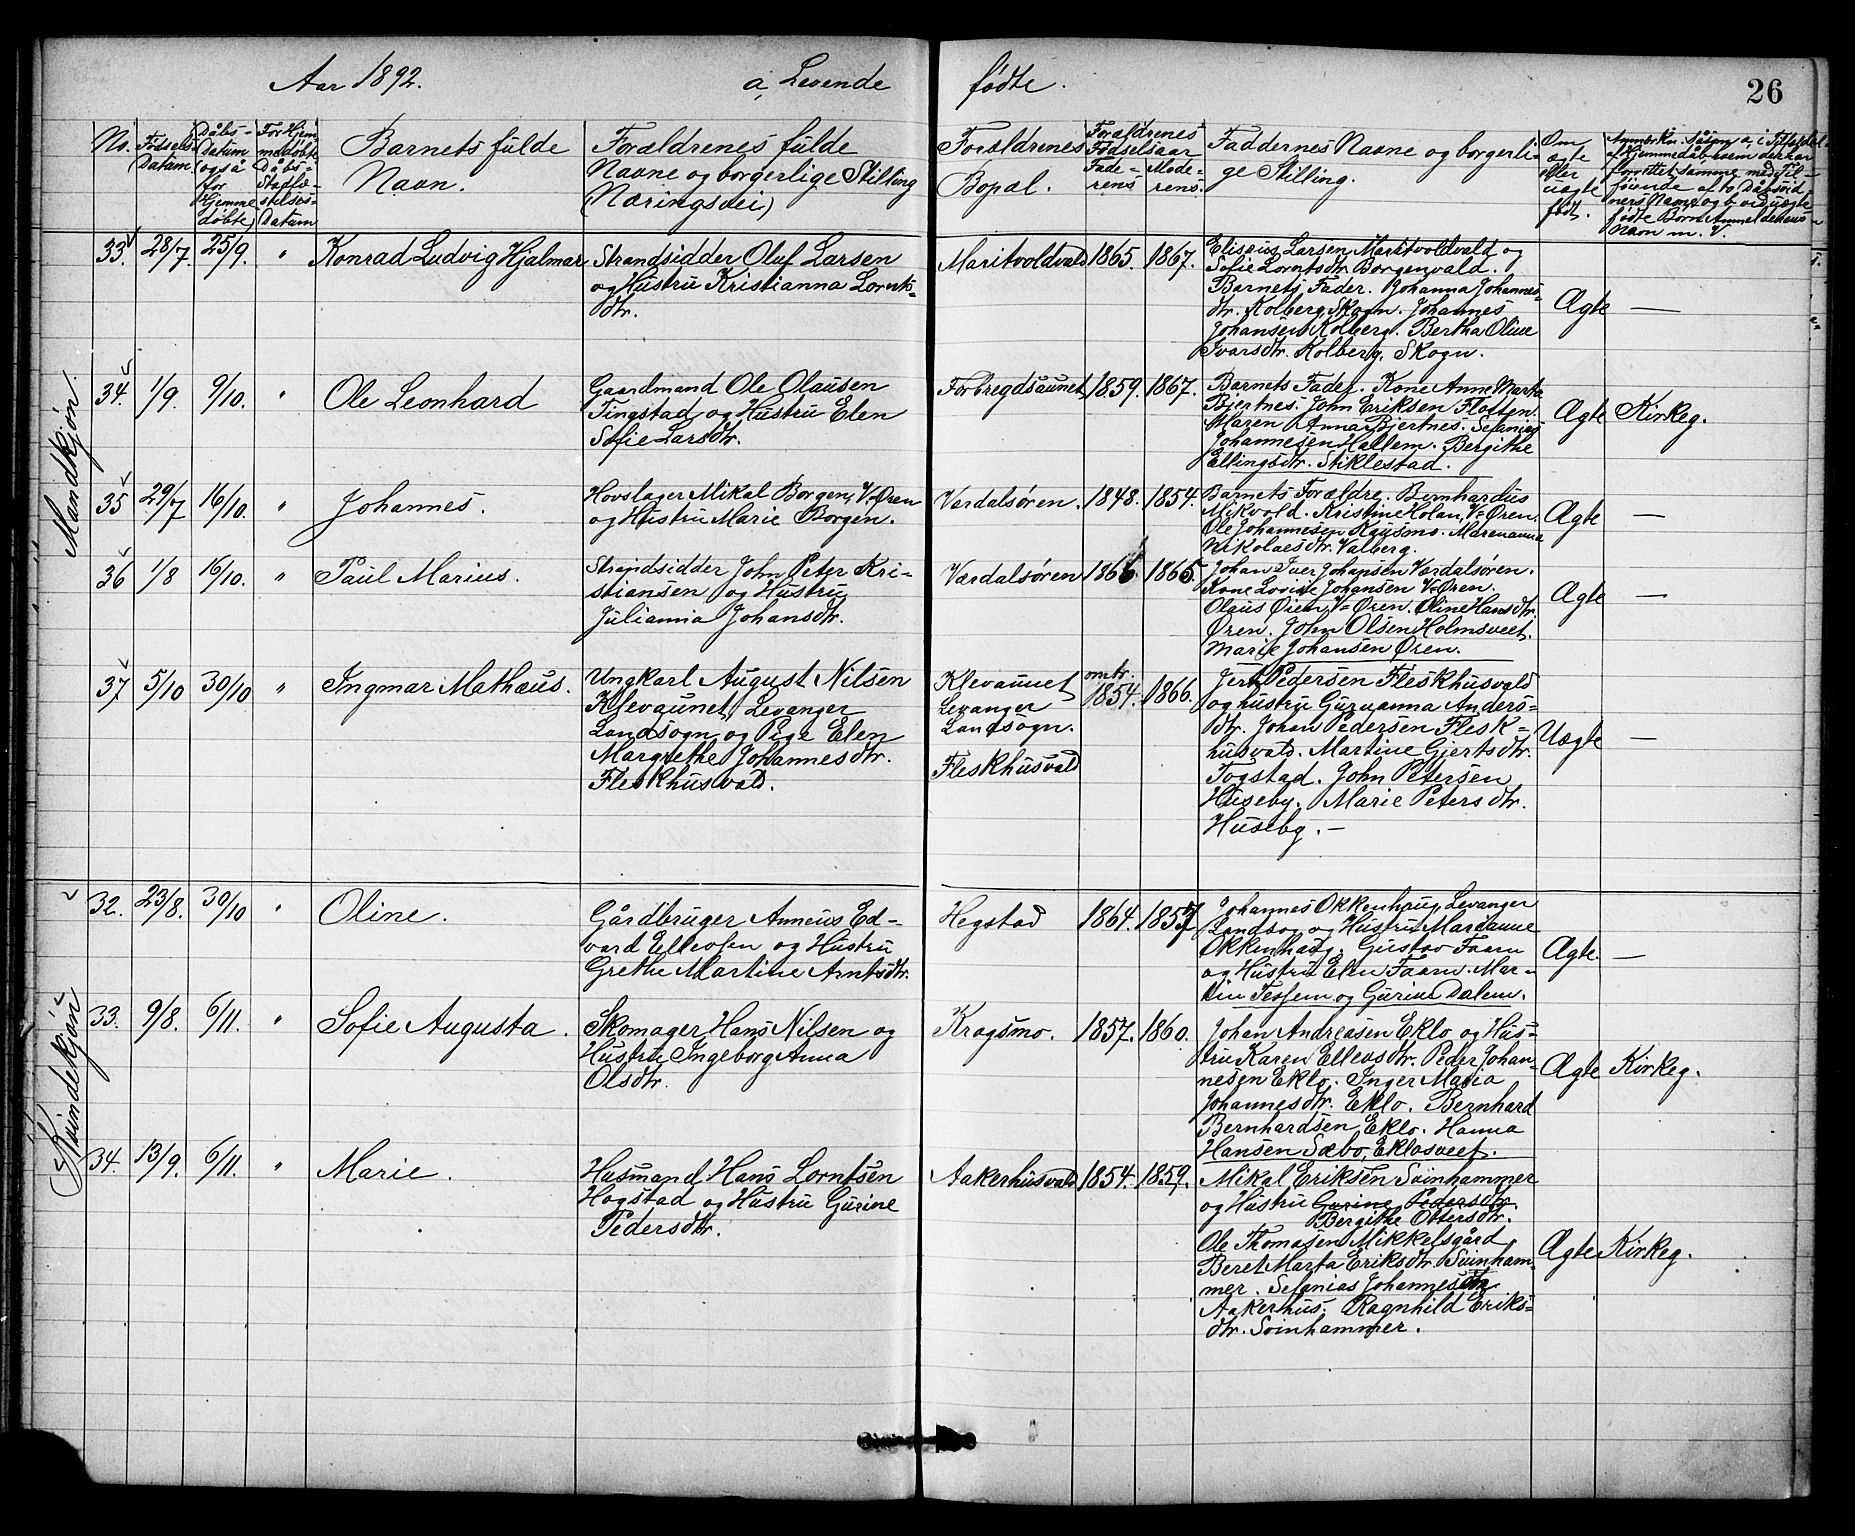 Aar 1892. a, Levende fødte. 26
No. Fødsels-Datum. Dåbs-Datum også for Hjemmedøbte) For Hjemmedøbte Dåbs-Stadfæstelses-Datum Barnets fulde Navn. Forældrenes fulde Navne og borgerlige Stilling (Næringsvei) Forældrenes Bopæl. Forældrenes Fødselsaar Faderens Moderens. Faddernes Navne og borgerlige Stilling. Om ægte eller uægte født.
Mandkjøn.
33. 28/7. 25/9. " Konrad Ludvig Hjalmar
Strandsidder Oluf Larsen
og Hustru Kristianna Lornts-
dtr.
Maritvoldvald 1865. 1867.
Elisæus Larsen, Maritvoldvald og
Sofie Lorntsdtr Borgenvald.
Barnets Fader. Johanna Johannes-
dtr. Kolberg, Skogn. Johannes
Johansen Kolberg. Bertha Oline
Ivarsdtr. Kolberg, Skogn.
Ægte —
34. 1/9. 9/10. " Ole Leonhard
Gaardmand Ole Olausen
Tingstad og Hustru Elen
Sofie Larsdtr.
Forbregdsaunet 1859. 1867.
Barnets Fader. Kone Anne Marta
Bjertnes. John Eriksen Flotten.
Maren Anna Bjertnes. Sefanias
Johannesen Hallem. Bergithe
Ellingsdtr. Stiklestad.
Ægte Kirkeg.
35 29/7 16/10. " Johannes.
Hovslager Mikal Borgen, V-Øren
og Hustru Marie Borgen.
Værdalsøren. 1848. 1854.
Barnets Forældre. Bernhardus
Mikvold. Kristine Holan, V-Øren.
Ole Johannesen Kausmo. Marenanna
Nikolaesdtr. Valberg.
Ægte —
36 1/8 16/10. " Paul Marius.
Strandsidder John Peter Kri-
stiansen og Hustru
Julianna Johansdtr.
Værdalsøren 1866 1865.
Johan Iver Johansen Værdalsøren.
Kone Lovise Johansen V-Øren.
Olaus Øien, V-Øren. Oline Hansdtr.
Øren. John Olsen Holmsveet.
Marie Johansen Øren.
Ægte —
37 5/10 30/10 " Ingmar Mathæus.
Ungkarl August Nilsen
Klevaunet, Levanger
Landsogn og Pige Elen
Margrethe Johannesdtr.
Fleskhusvald.
Klevaunet
Levanger
Landsogn.
Fleskhusvald
omtr. 1854. 1866.
Jert Pedersen Fleskhusvald
og hustru Guruanna Anders-
dtr. Johan Pedersen Flesk-
husvald. Martine Gjertsdtr.
Togstad. John Petersen
Huseby. Marie Petersdtr.
Huseby. —
Uægte —
Kvindekjøn
32. 23/8. 30/10 " Oline.
Gårdbruger Anneus Ed-
vard Ellevsen og Hustru
Grethe Martine Arntsdtr.
Hegstad 1864. 1857
Johannes Okkenhaug, Levanger
Landsog og Hustru Marianne
Okkenhaug. Gustav Faarn
og Hustru Elen Faarn. Mar-
tin Tessem og Gurine Dalem.
Ægte. —
33. 9/8. 6/11. " Sofie Augusta.
Skomager Hans Nilsen og
Hustru Ingeborg Anna
Olsdtr.
Kragsmo. 1857. 1860.
Johan Andreasen Eklo og Hus-
tru Karen Ellevsdtr. Peder Johan-
nesen Eklo. Inger Maria
Johannesdtr. Eklo. Bernhard
Bernhardsen, Eklo. Hanna
Hansen Sæbo, Eklosveet.
Ægte Kirkeg.
34. 13/9. 6/11. " Marie.
Husmand Hans Lorntsen
Hogstad og Hustru Gurine
Pedersdtr.
Aakerhusvald 1854. 1859.
Mikal Eriksen Svinhammer
og Hustru Gurine Pedersdtr.
Bergithe Ottersdtr.
Ole Thomasen Mikkelsgård
Beret Marta Eriksdtr Svinham-
mer. Sefanias Johannesen
Aakerhus. Ragnhild Eriks-
dtr. Svinhammer.
Ægte Kirkeg.